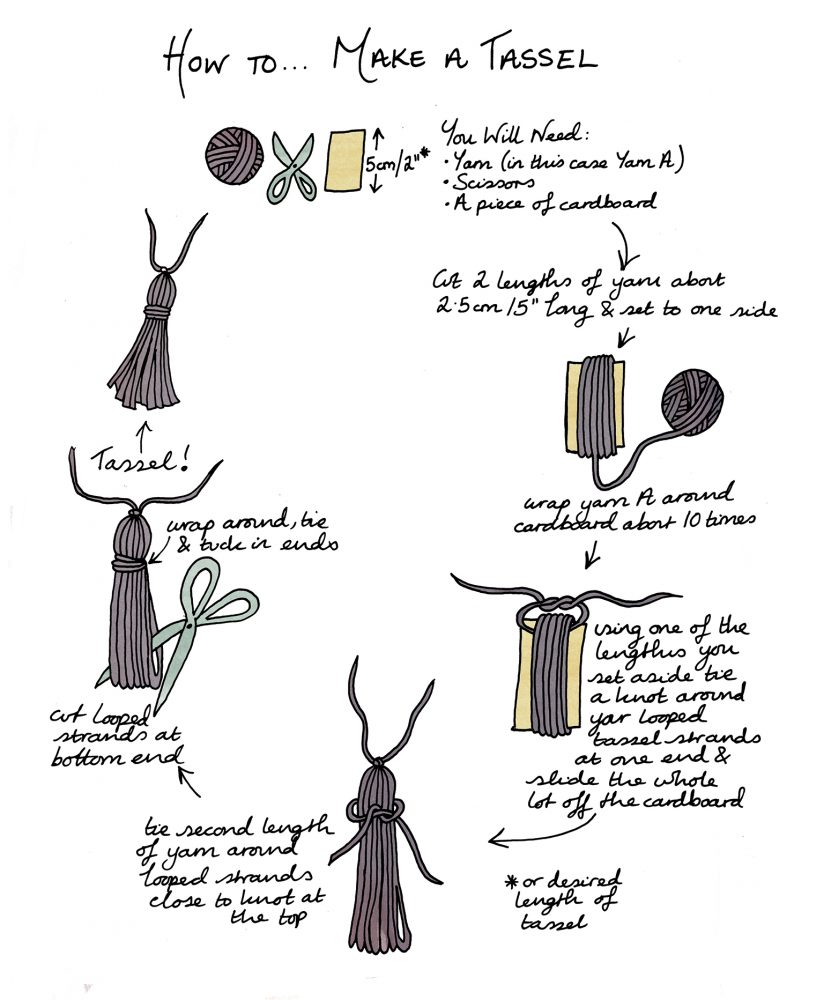 How to... Make a Tassel
5cm/2"*
You Will Need:
• Yarn (in this case Yarn A)
• Scissors
• A piece of cardboard
Cut 2 lengths of yarn about
2.5cm/5" long & set to one side
wrap yarn A around
cardboard about 10 times
using one of the
lengths you
set aside tie
a knot around
your looped
tassel strands
at one end &
slide the whole
lot off the cardboard
* or desired
length of
tassel
tie second length
of yarn around
looped strands
close to knot at
the top
cut looped
strands at
bottom end
wrap around, tie
& tuck in ends
Tassel!